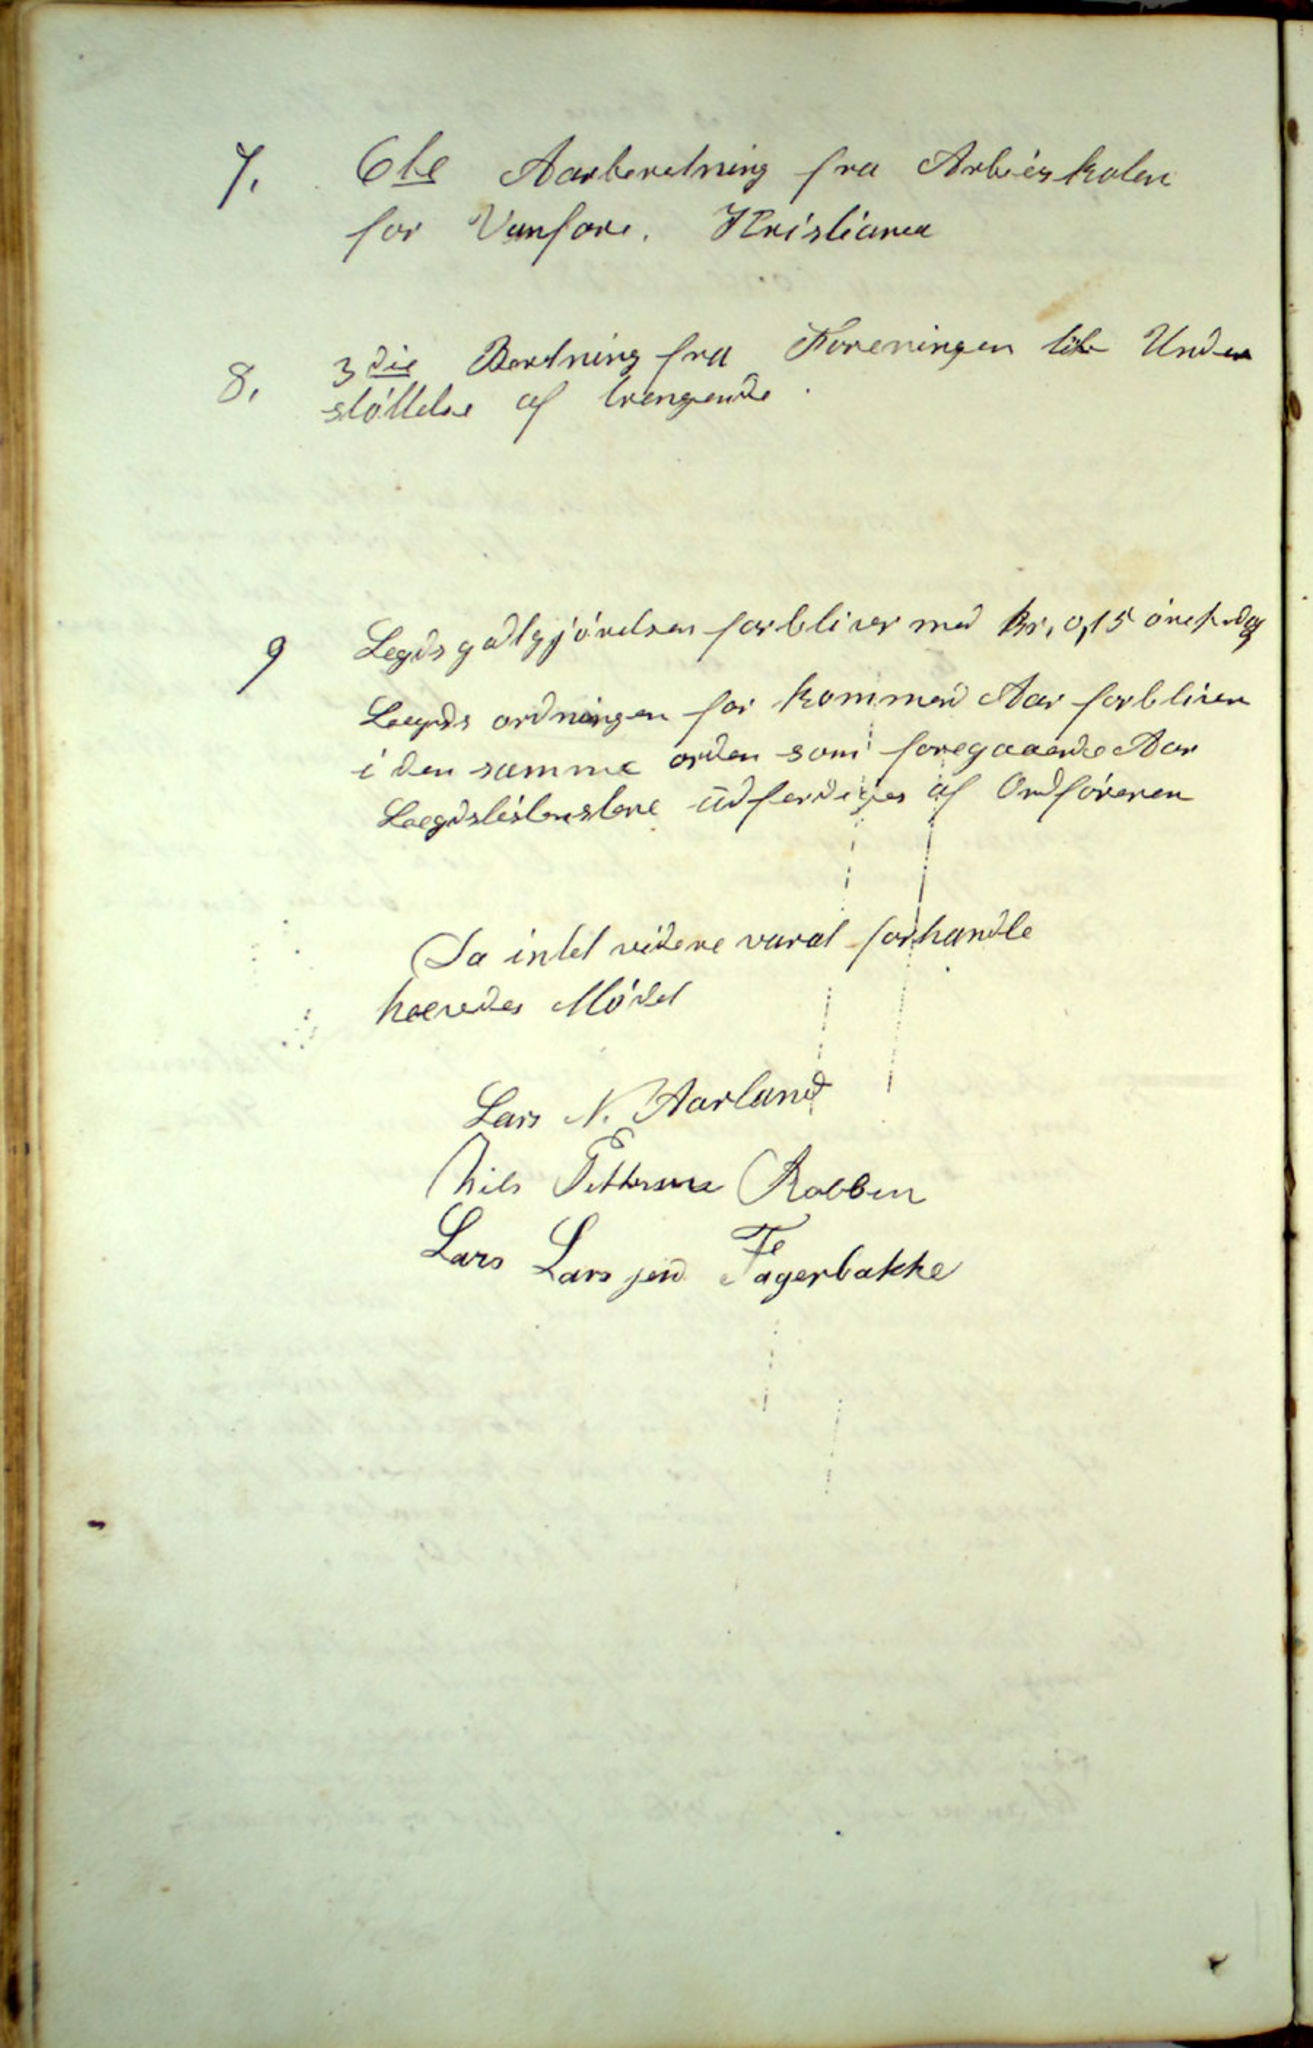 7. 6te Aarberetning fra Arbeiskolen
for Vanføre. Kristiania
8. 3die Beretning fra Foreningen til Under
støttelse af trengende.
9 Legdsgodtgjørelsen forbliver med Kr. 0,15 øre pr. dag
Lægds ordningen for kommend Aar forbliver
i den samme orden som foregaaende Aar
Lægdslistenstene udferdiges af Ordføreren
Da intet videre varat forhandle
hævedes Mødet
Lars N. Aarland
Nils Pettersen Robben
Lars Larsen Fagerbakke